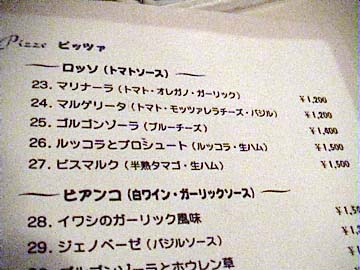 Pizze ピッツァ
ロッソ(トマトソース)
23. マリナーラ(トマト・オレガノ・ガーリック) ¥1,200
24. マルゲリータ(トマト・モッツァレラチーズ・バジル) ¥1,200
25. ゴルゴンゾーラ(ブルーチーズ) ¥1,400
26. ルッコラとプロシュート(ルッコラ・生ハム) ¥1,500
27. ビスマルク(半熟タマゴ・生ハム) ¥1,500
ビアンコ(白ワイン・ガーリックソース)
28. イワシのガーリック風味
29. ジェノベーゼ(バジルソース)
ゴルゴンゾーラとホウレン草